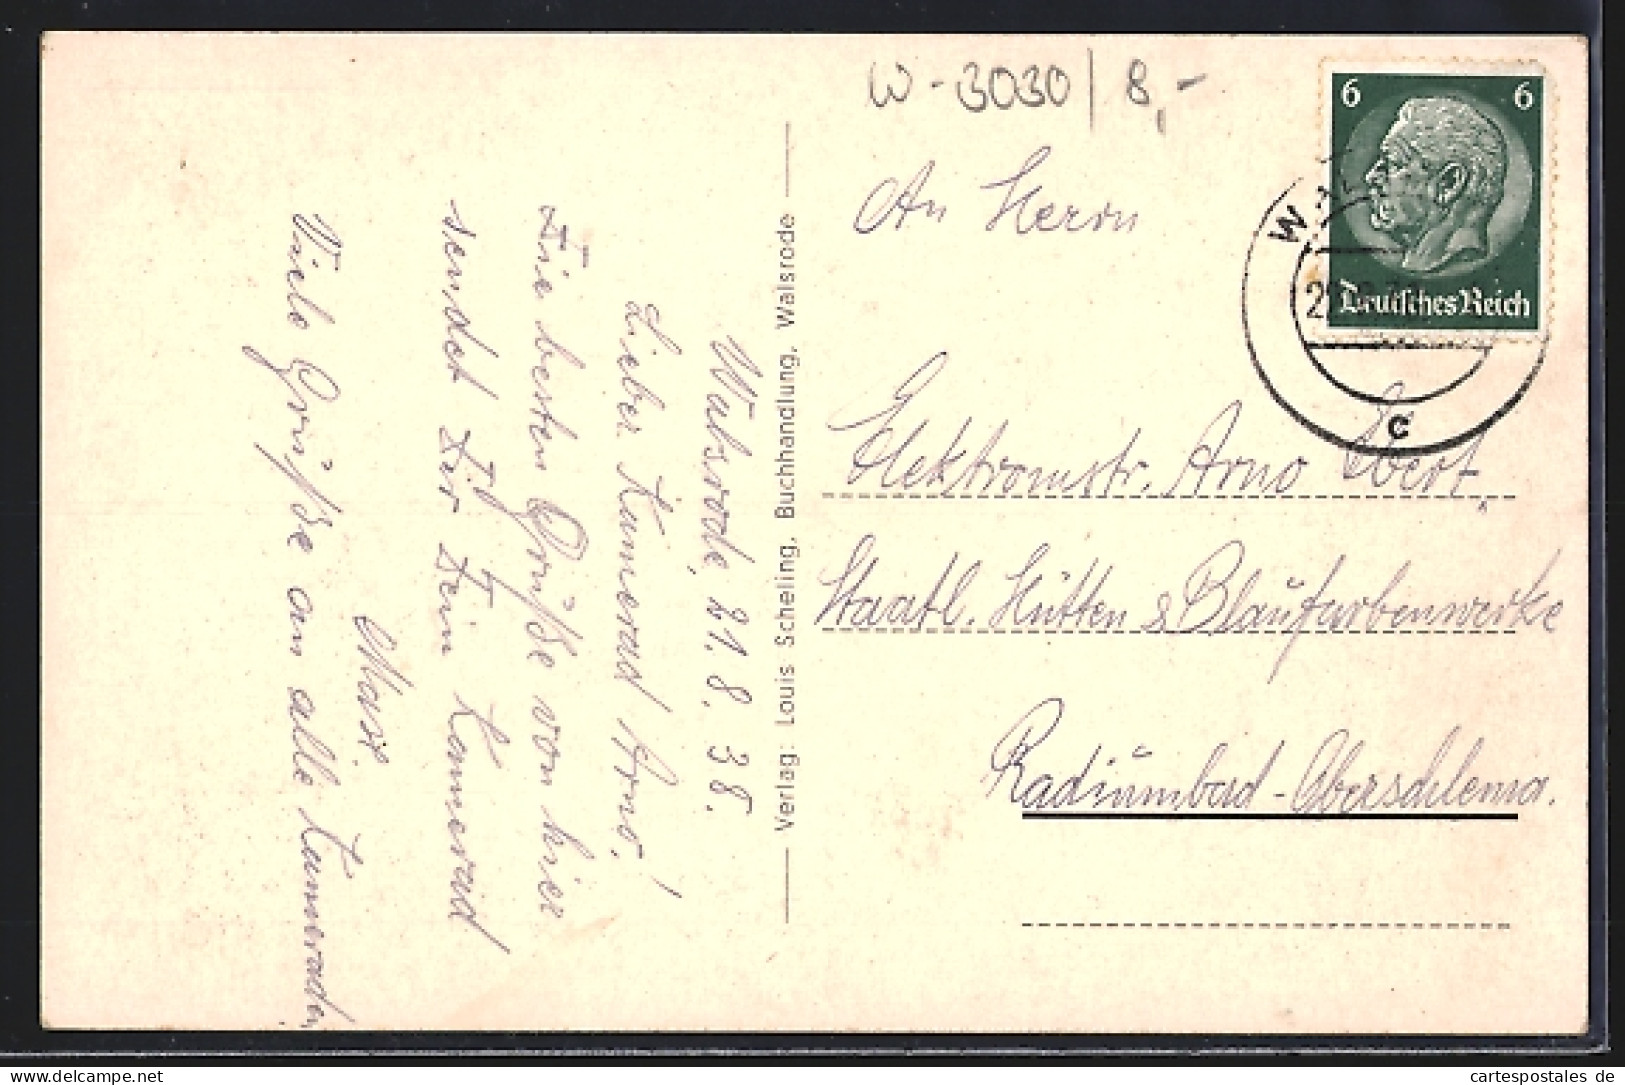 W-3030/8,-
6 6
Deutsches Reich
W
2
c
An Herrn
Elektromstr. Arno Ebert,
Staatl. Hütten & Blaufarbenwerke
Radiumbad-Oberschlema.
Verlag: Louis Scheling, Buchhandlung, Walsrode
Walsrode, 21.8.38.
Lieber Kamerad Arno!
Die besten Grüße von hier
sendet Dir Dein Kamerad
Max.
Viele Grüße an alle Kameraden
Delcampe.net
cartespostales de